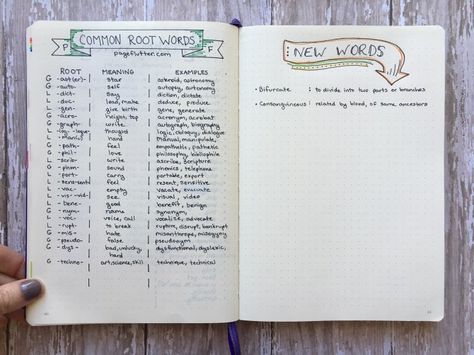 P COMMON ROOT WORDS F
pageflutter.com
ROOT MEANING EXAMPLES
G -ast(er)- star asteroid, astronomy
G -auto- self autopsy, autonomy
L -dict- say diction, dictate
L -duc- lead, make deduce, produce
L -gen- give birth gene, generate
G -acro- height, top acronym, acrobat
G -graph- write cartograph, biography
L -log- -logue- thought logic, catalog, dialogue
L -manu- hand manual, manipulate
G -path- feel empathetic, pathetic
G -phil- love philosophy, bibliophile
L -scrib- write ascribe, scripture
G -phon- sound phonics, telephone
L -port- carry portable, export
L -sens-sent- feel resent, sensitive
L -vac- empty vacate, evacuate
L -vis- -vid- see visual, video
L -bene- good benefit, benign
G -nym- name synonym,
L -voc- voice, call vocalise, advocate
L -rupt- to break rupture, disrupt, bankrupt
G -mis- hate misanthrope, misogyny
G -pseudo- false pseudonym
G -dys- bad, unlucky dysfunctional, dyslexic,
hard
G -techno- art, science, skill technique, technical
NEW WORDS
• Bifurcate : to divide into two parts or branches
• Consanguineous : related by blood, of same ancestors